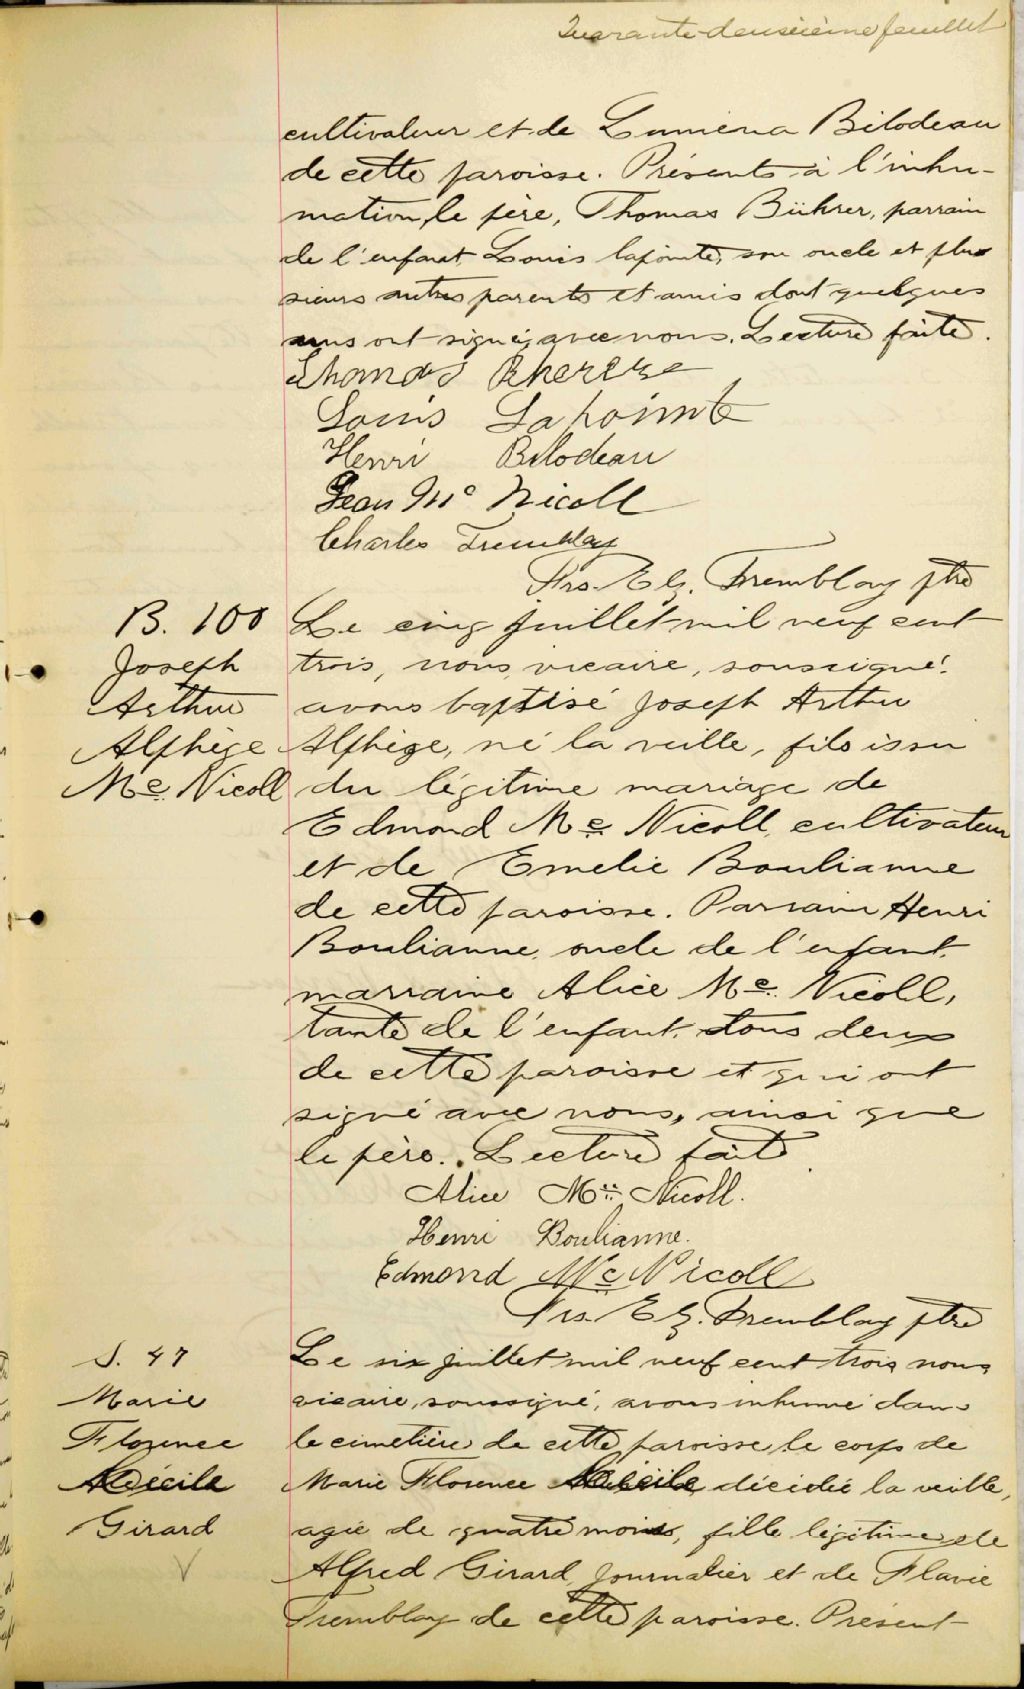 Quarante-deuxième feuillet
cultivateur et de Lumena Bilodeau
de cette paroisse. Présents à l'inhu-
mation, le père, Thomas Bührer, parrain
de l'enfant, Louis Lapointe, son oncle et plu
sieurs autres parents et amis dont quelques
uns ont signé, avec nous. Lecture faite.
Thomas
Louis Lapointe
Henri Bilodeau
Jean Mc Nicoll
Charles Tremblay
Frs. Elz. Tremblay ptre
B. 100
Joseph
Arthur
Alphège
Mc. Nicoll
Le cinq juillet mil neuf cent
trois, nous, vicaire, soussigné,
avons baptisé Joseph Arthur
Alphège, né la veille, fils issu
du légitime mariage de
Edmond Mc Nicoll, cultivateur
et de Emelie Boulianne
de cette paroisse. Parrain Henri
Boulianne, oncle de l'enfant,
marraine Alice Mc. Nicoll,
tante de l'enfant, tous deux
de cette paroisse et qui ont
signé avec nous, ainsi que
le père. Lecture faite
Alice Mc Nicoll.
Henri Boulianne.
Edmond Mc Nicoll
Frs. Elz. Tremblay ptre
S. 47
Marie
Florence
Cécile
Girard
Le six juillet mil neuf cent trois, nous
vicaire, soussigné, avons inhumé dans
le cimetière de cette paroisse le corps de
Marie Florence Cécile, décédée la veille,
agée de quatre mois, fille légitime de
Alfred Girard, journalier et de Flavie
Tremblay de cette paroisse. Présent